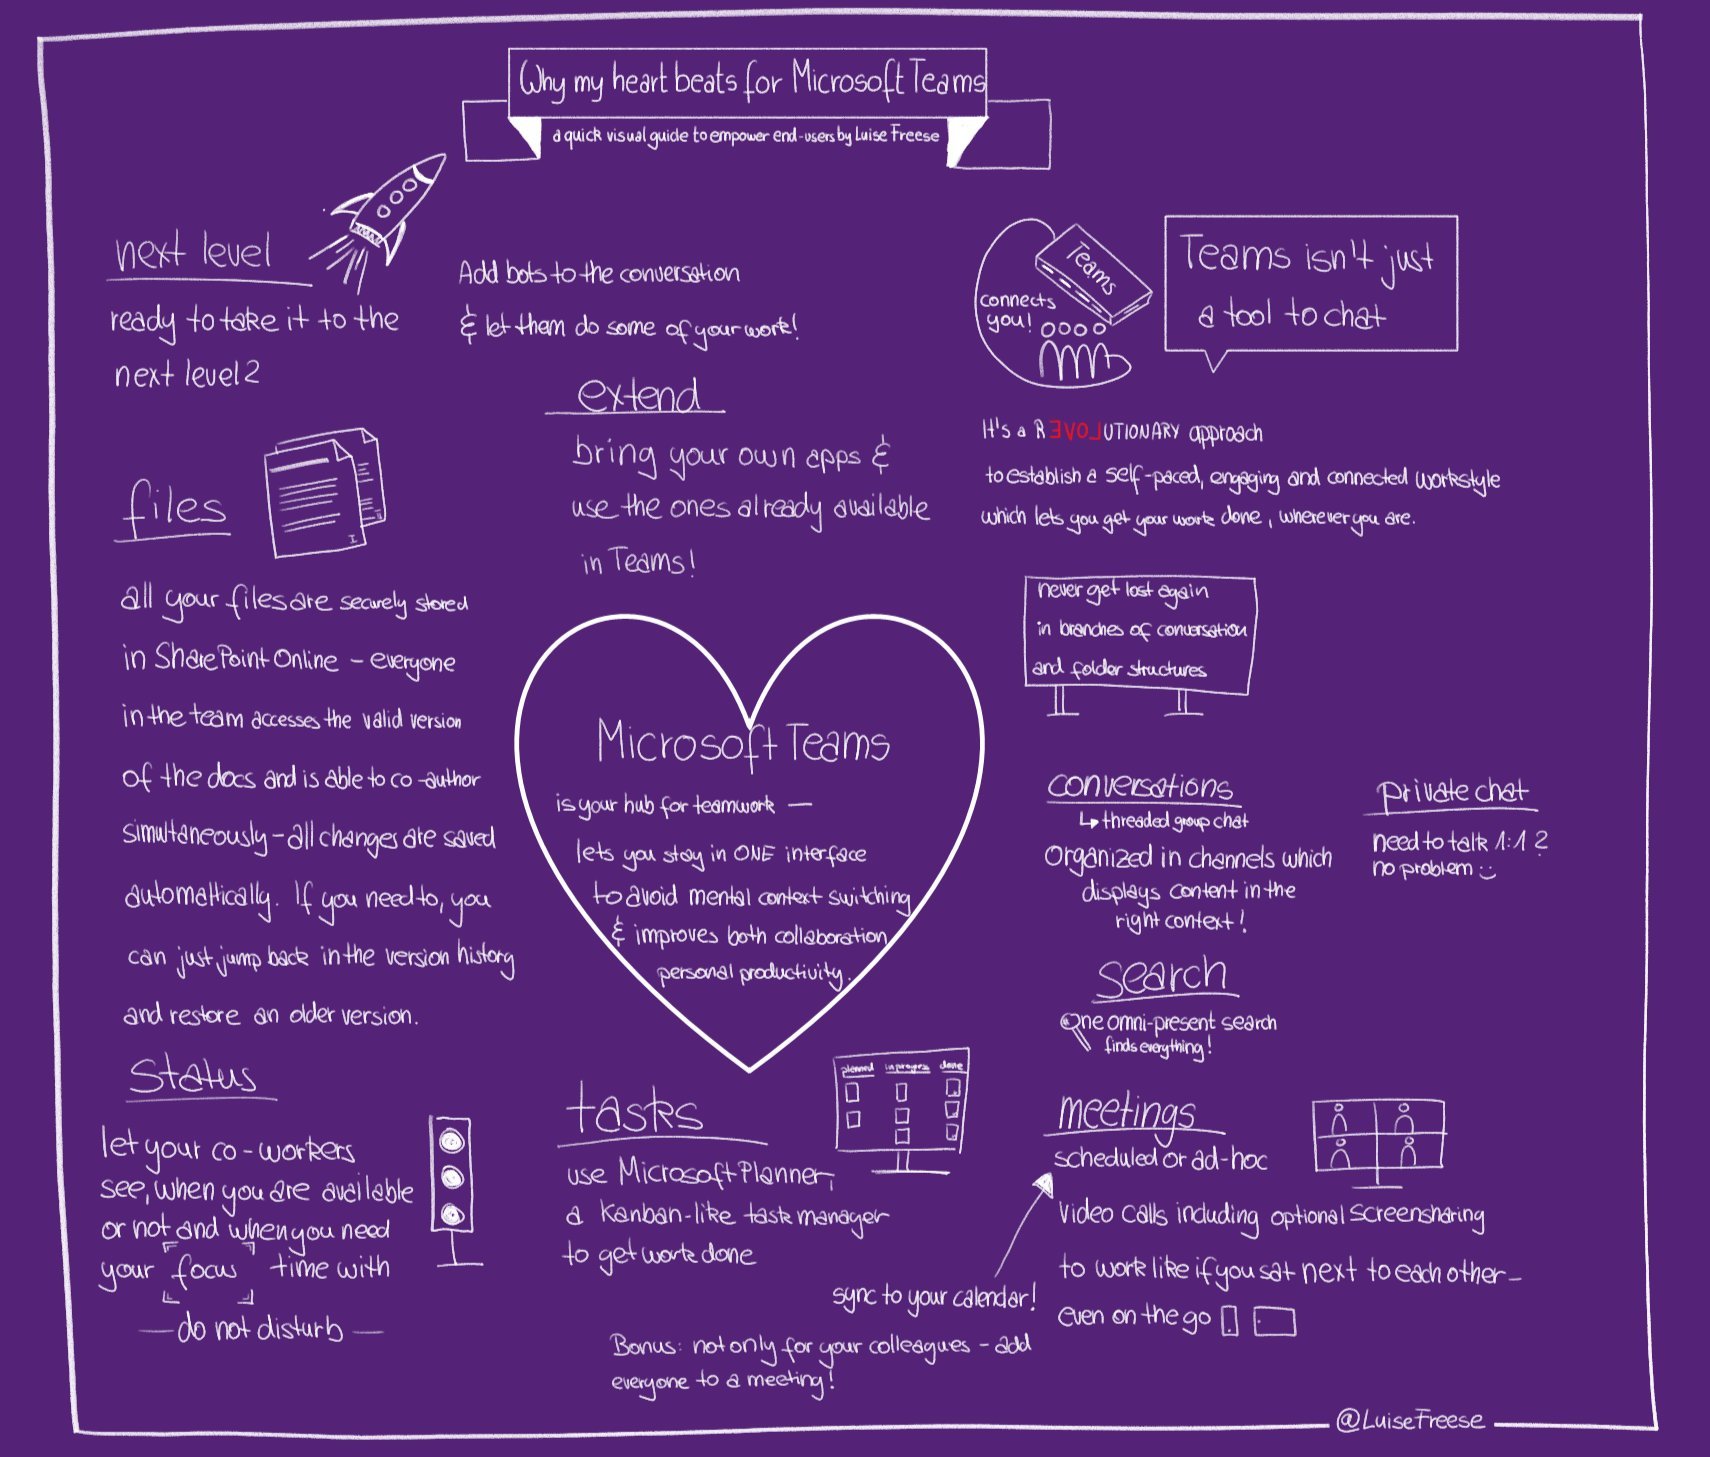 Why my heart beats for Microsoft Teams
a quick visual guide to empower end-users by Luise Freese
next level
ready to take it to the
next level?
Add bots to the conversation
& let them do some of your work!
extend
bring your own apps &
use the ones already available
in Teams!
Teams
connects
you!
Teams isn't just
a tool to chat
It's a REVOLUTIONARY approach
to establish a self-paced, engaging and connected workstyle
which lets you get your work done, wherever you are.
files
all your files are securely stored
in SharePoint Online – everyone
in the team accesses the valid version
of the docs and is able to co-author
simultaneously – all changes are saved
automattically. If you need to, you
can just jump back in the version history
and restore an older version.
never get lost again
in branches of conversation
and folder structures
Microsoft Teams
is your hub for teamwork —
lets you stay in ONE interface
to avoid mental context switching
& improves both collaboration
personal productivity.
conversations
↳ threaded group chat
Organized in channels which
displays content in the
right context!
private chat
need to talk 1:1?
no problem
search
One omni-present search
finds everything!
status
let your co-workers
see, when you are available
or not and when you need
your focus time with
— do not disturb —
tasks
use Microsoft Planner,
a Kanban-like task manager
to get work done
planned in progress done
meetings
scheduled or ad-hoc
Video calls including optional screensharing
to work like if you sat next to each other –
even on the go
sync to your calendar!
Bonus: not only for your colleagues – add
everyone to a meeting!
@LuiseFreese